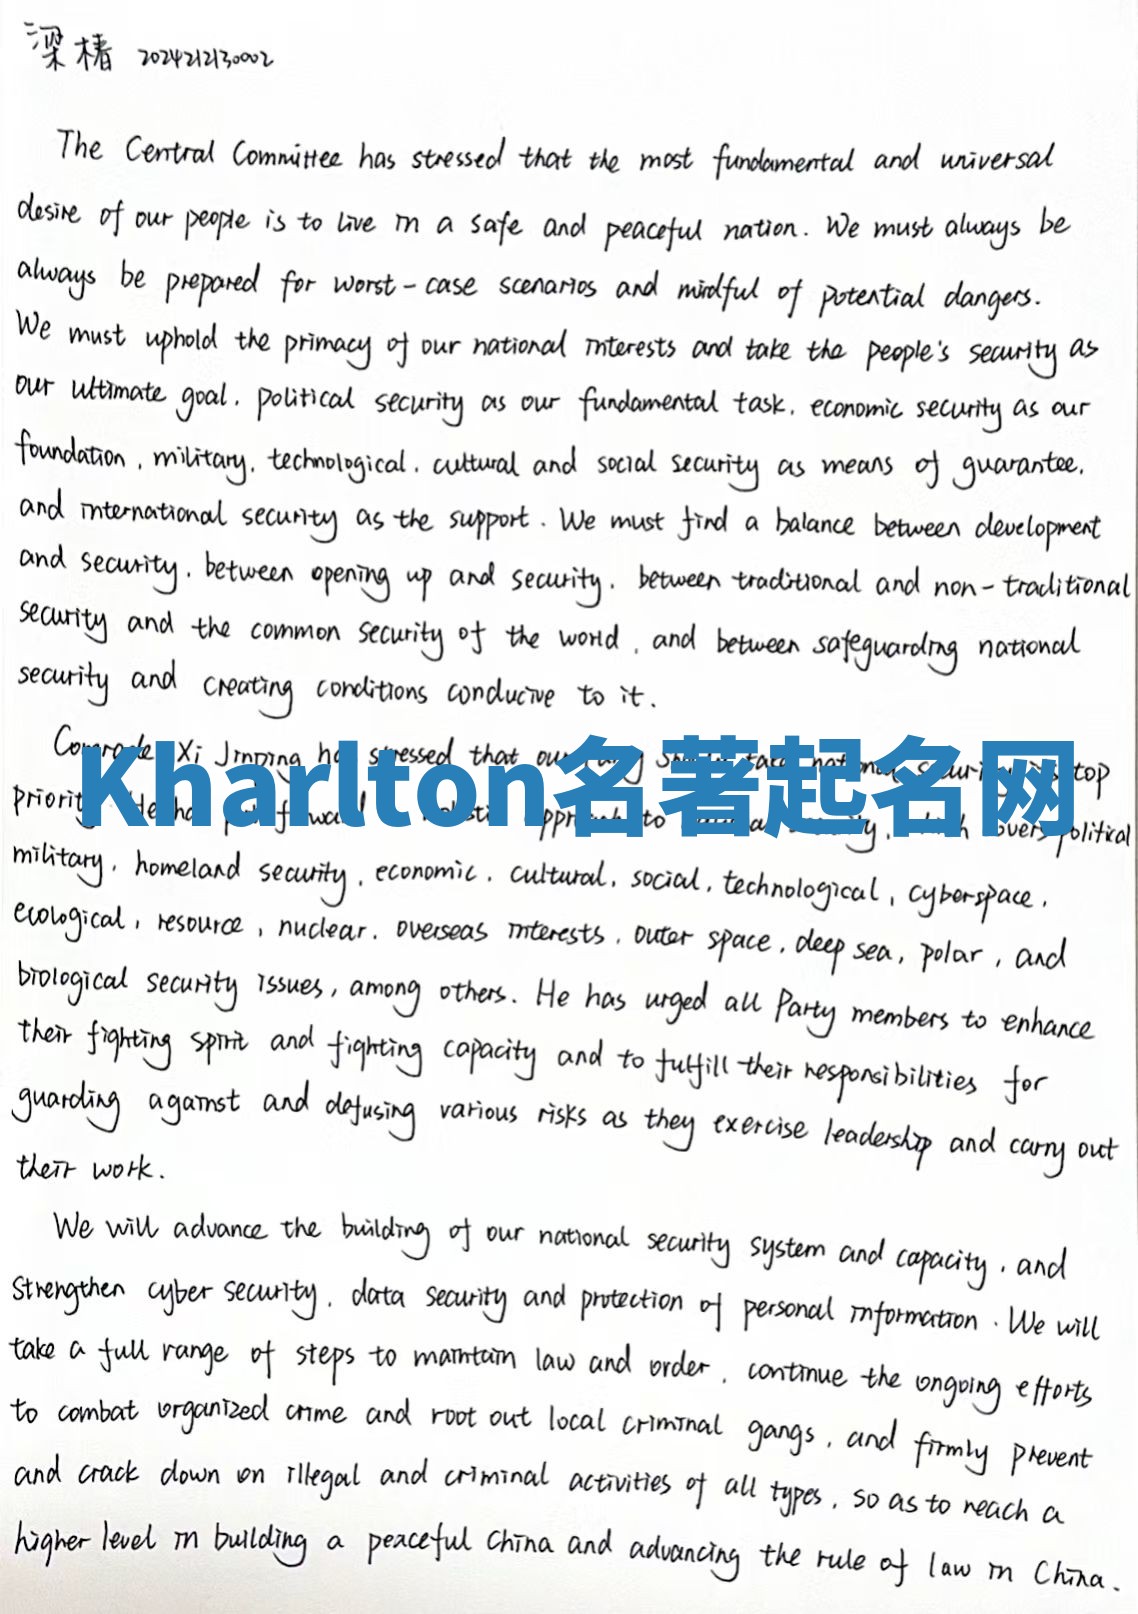 梁椿 2024212130002
The Central Committee has stressed that the most fundamental and universal
desire of our people is to live in a safe and peaceful nation. We must always be
always be prepared for worst-case scenarios and mindful of potential dangers.
We must uphold the primacy of our national interests and take the people's security as
our ultimate goal, political security as our fundamental task, economic security as our
foundation, military, technological, cultural and social security as means of guarantee,
and international security as the support. We must find a balance between development
and security, between opening up and security, between traditional and non-traditional
security and the common security of the world, and between safeguarding national
security and creating conditions conducive to it.
Comrade Xi Jinping has stressed that our top
Kharlton名著起名网
to political
military, homeland security, economic, cultural, social, technological, cyberspace,
ecological, resource, nuclear, overseas interests, outer space, deep sea, polar, and
biological security issues, among others. He has urged all Party members to enhance
their fighting spirit and fighting capacity and to fulfill their responsibilities for
guarding against and defusing various risks as they exercise leadership and carry out
their work.
We will advance the building of our national security system and capacity, and
strengthen cyber security, data security and protection of personal information. We will
take a full range of steps to maintain law and order, continue the ongoing efforts
to combat organized crime and root out local criminal gangs, and firmly prevent
and crack down on illegal and criminal activities of all types, so as to reach a
higher level in building a peaceful China and advancing the rule of law in China.